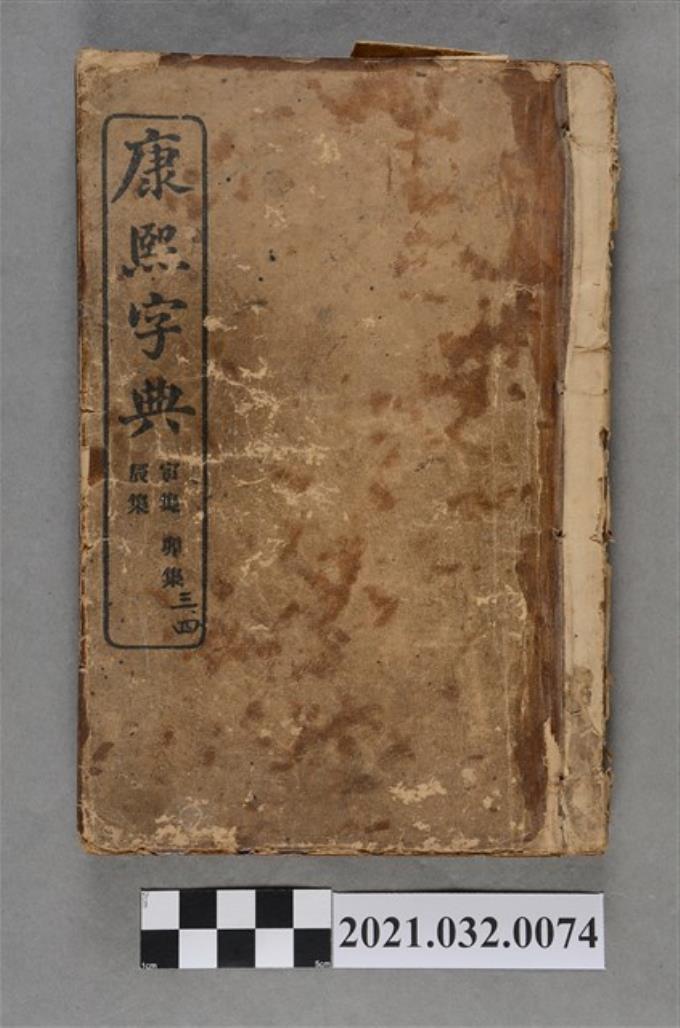 康熙字典
寅集 卯集
辰集
三、四
2021.032.0074
1cm
5cm